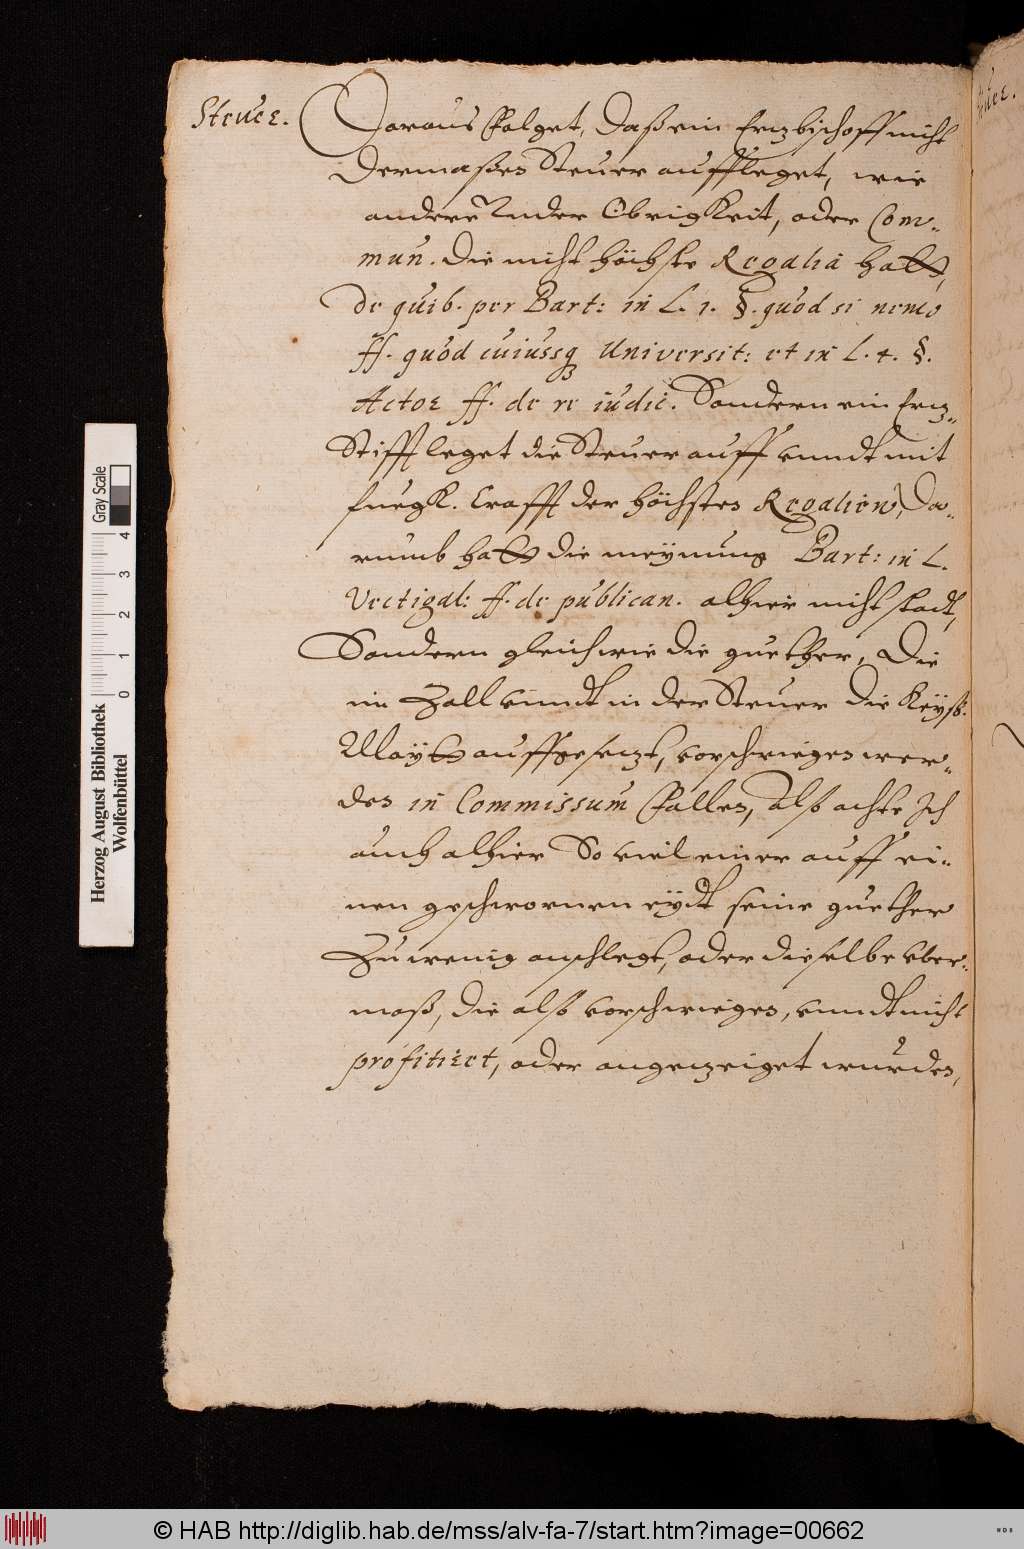 Steuer.
Daraus folget, daß ein Ertzbischoff nicht
dermaßen Steuer auffleget, wie
andere Under Obrigkeit, oder Com-
mun. die nicht höchste Regalia hatt,
de quib. per Bart: in L. 1. §. quod si nemo
ff. quod cuiusq Universit: et in L. 4. §.
Actor ff. de re iudic. Sondern ein Ertz-
Stifft leget die Steuer auff unndt mit
fuegk. Crafft der höchsten Regalien, Da-
rumb hatt die meÿnung Bart: in L.
Vectigal: ff. de publican. alhier nicht stadt,
Sondern gleich wie die guether, Die
im Zoll unndt in der Steuer die Keÿß.
Maÿtt auffgesetzt, vorschwiegen wer-
den in Commissum fallen, Alß achte Ich
auch alhier So viel einer auff ei-
nen geschwornen eÿdt seine guether
Zu wenig anschlegt, oder dieselbe uber-
maß, die alß vorschwiegen, unndt nicht
profitiert, oder angezeiget wurden,
Herzog August Bibliothek
Wolfenbüttel
0 1 2 3 4
Gray Scale
© HAB http://diglib.hab.de/mss/alv-fa-7/start.htm?image=00662